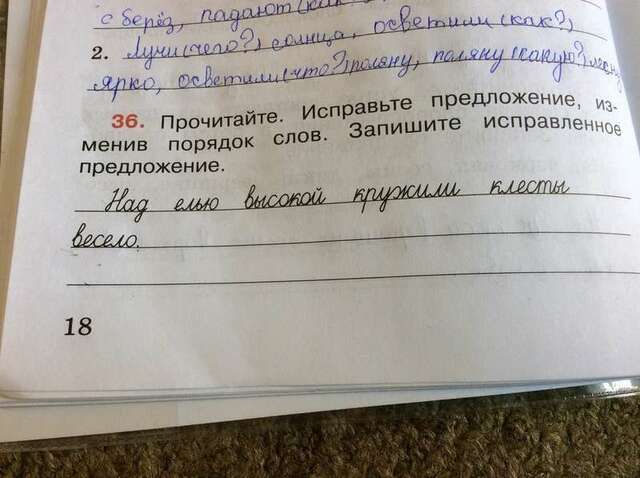 с берёз, падают (как
2. Лучи (чего?) солнца, осветили (как?)
ярко, осветили (что?) поляну, поляну (какую?)
36. Прочитайте. Исправьте предложение, из-
менив порядок слов. Запишите исправленное
предложение.
Над елью высокой кружили клесты
весело.
18